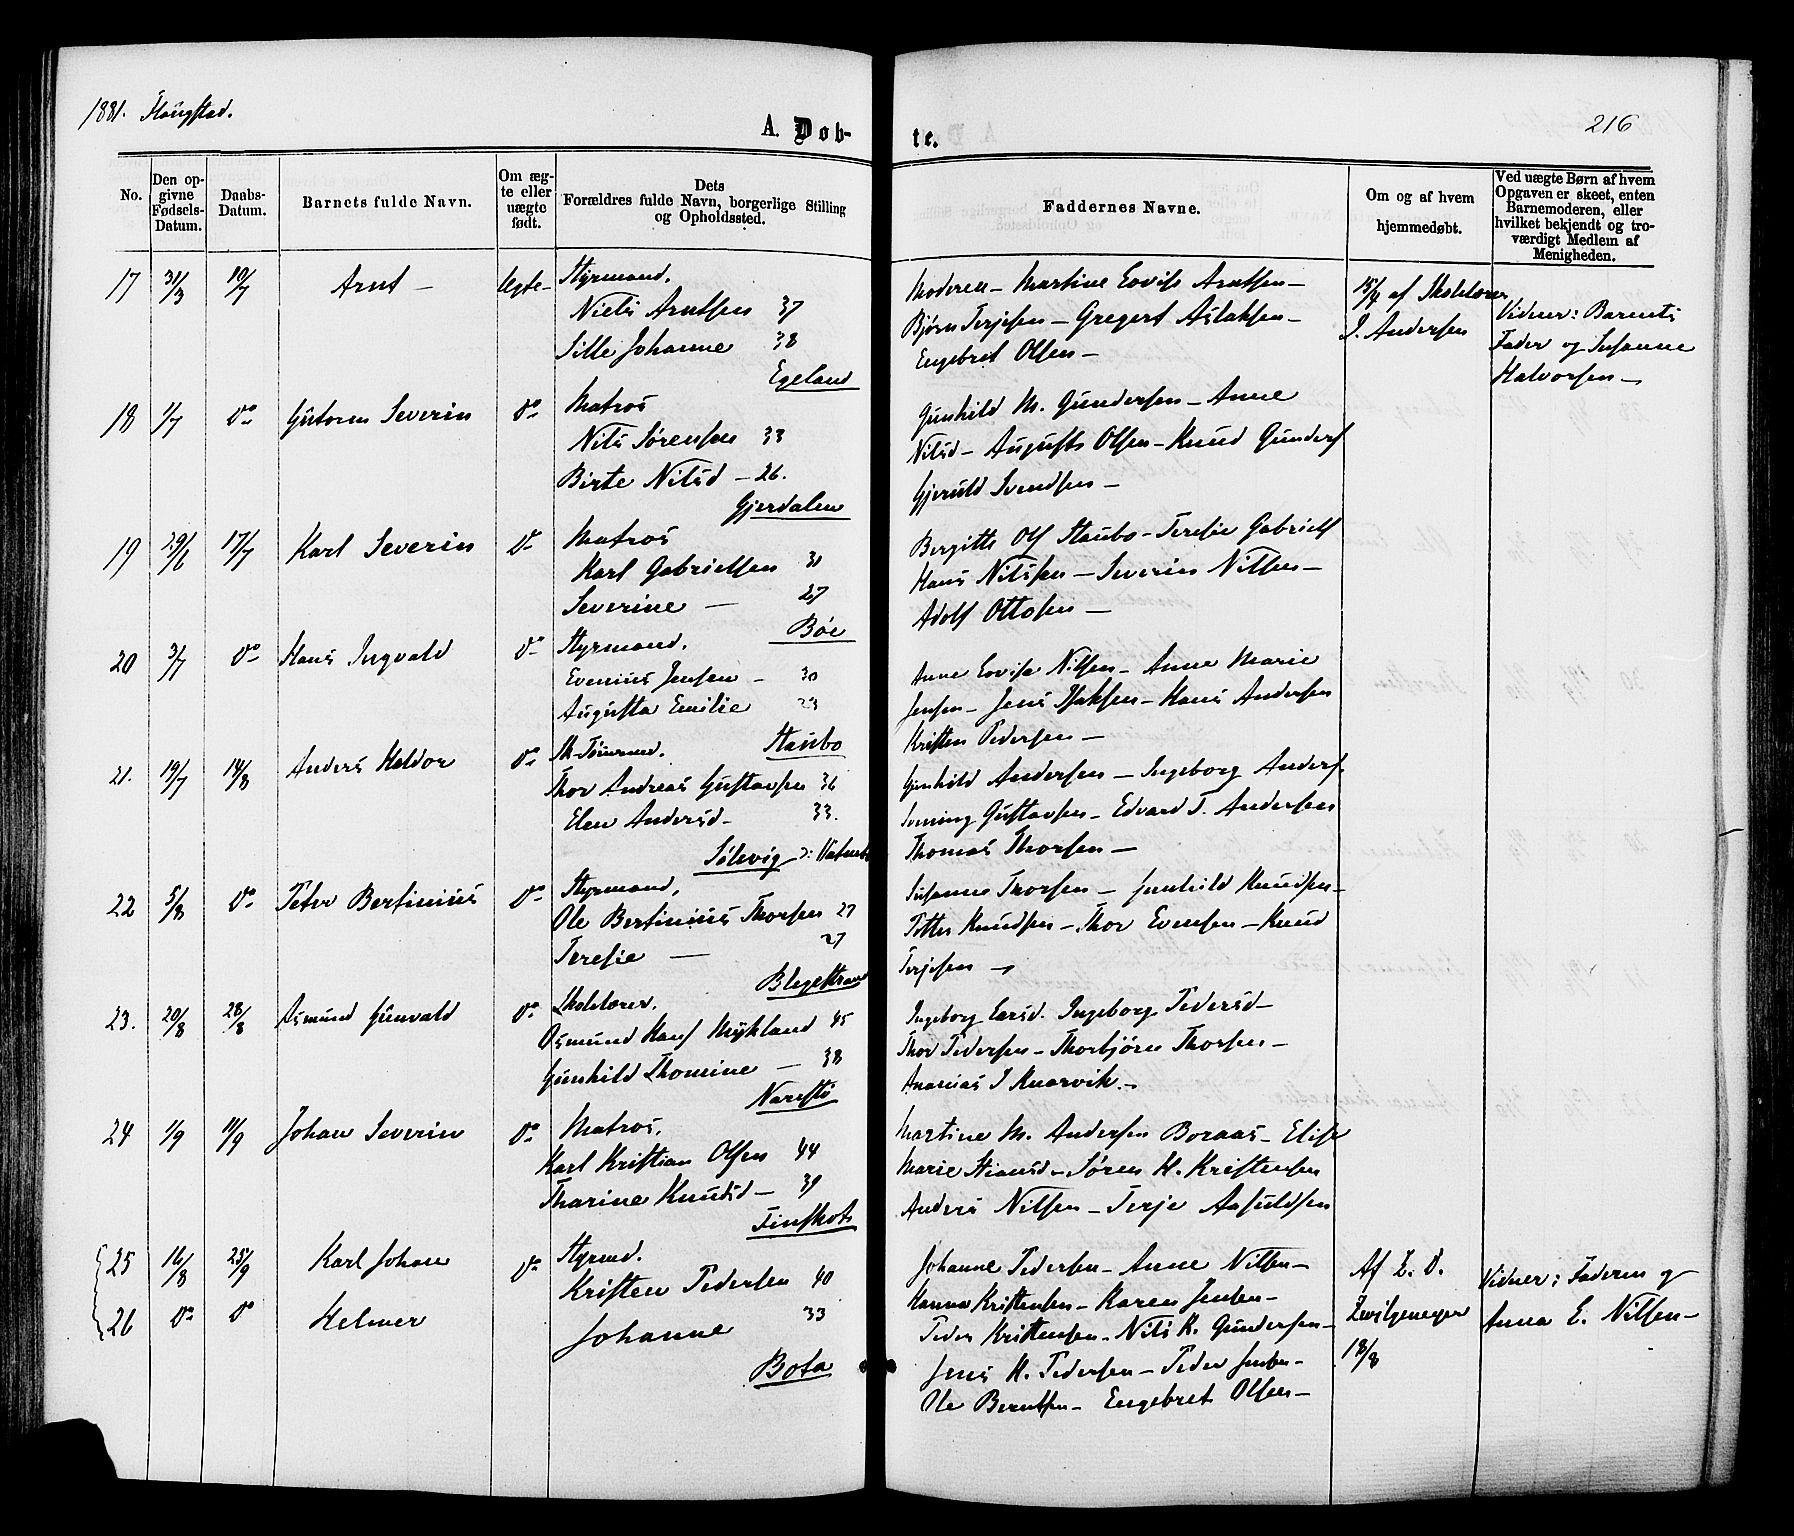 1881. Flaugstad.
A. Døb-
te.
216
No.
Den op-
givne
Fødsels-
Datum.
Daabs-
Datum.
Barnets fulde Navn.
Om æg-
te eller
uægte
født.
Dets
Forældres fulde Navn, borgerlige Stilling
og Opholdssted.
Faddernes Navne.
Om og af hvem
hjemmedøbt.
Ved uægte Børn af hvem
Opgaven er skeet, enten
Barnemoderen, eller
hvilket bekjendt og tro-
værdigt Medlem af
Menigheden.
17 31/3 10/7 Arnt – Ægte – Styrmand.
Niels Arntsen 37
Sille Johanne 38
Egeland
Moderen – Martine Lovise Arntsen –
Bjørn Terjesen – Gregert Aslaksen –
Engebret Olsen –
15/4 af Skolelærer
J. Andersen
Vidner: Barnets
Fader og Susanne
Halvorsen –
18 1/7 Do Guttorm Severin Do Matros
Nils Sørensen 33
Birte Nilsd – 26.
Gjerdalen
Gunhild M. Gundersen – Anne
Nilsd – Augusts Olsen – Knud Gunders
Gjeruld Svendsen –
19 29/6 17/7 Karl Severin Do Matros
Karl Gabrielsen 31
Severine – 27
Bøe
Bergitte Ols Staubo – Teresie Gabriels
Hans Nilssen – Severin Nilsen –
Adolf Ottosen –
20 3/7 Do Hans Ingvald Do Styrmand.
Evenius Jensen – 30
Augusta Emilie 23
Staubo
Anne Lovise Nilsen – Anne Marie
Jensen – Jens Isaksen – Hans Andersen
Kristen Pedersen –
21. 19/7 14/8 Anders Haldor Do Sk-Tømmrmd.
Thor Andreas Gustavsen 36
Elen Andersd – 33.
Sølevig
Gunhild Andersen – Ingeborg Anders
Sonning Gustavsen – Edvard T. Andersen
Thomas Thorsen –
22 5/8 Do Peter Bertinius Do Styrmand,
Ole Bertinius Thorsen 27
Teresie – 27
Blegestrand
Susanne Thorsen – Gunhild Knudsen –
Petter Knudsen – Thor Evensen – Knud
Terjesen –
23. 20/8 28/8 Asmund Gunvald Do Skolelærer.
Osmund Hans Mykland 45
Gunhild Thomine – 38
Narestø
Ingeborg Larsd. Ingeborg Pedersd –
Thor Pedersen – Thorbjørn Thorsen –
Ananias J Knarvik. –
24 1/9 11/9 Johan Severin Do Matros.
Karl Kristian Olsen 44
Tharine Knudsd – 39
Finskot
Martine M. Andersen Boraas – Elise
Marie Stiansd – Søren H. Kristensen
Anders Nilsen – Terje Aasuldsen
25 16/8 25/9 Karl Johan Do Styrmd.
Kristen Pedersen 40
26 Do Do Helmer
Johanne 33
Bota
Johanne Pedersen – Anne Nilsen –
Hanna Kristensen – Karen Jensen –
Peder Kristensen – Nils K. Gundersen –
Jens H. Pedersen – Peder Jensen –
Ole Berntsen – Engebret Olsen –
Af E. D.
Zwilgmeyer
18/8
Vidner: Faderen og
Anna E. Nilsen –